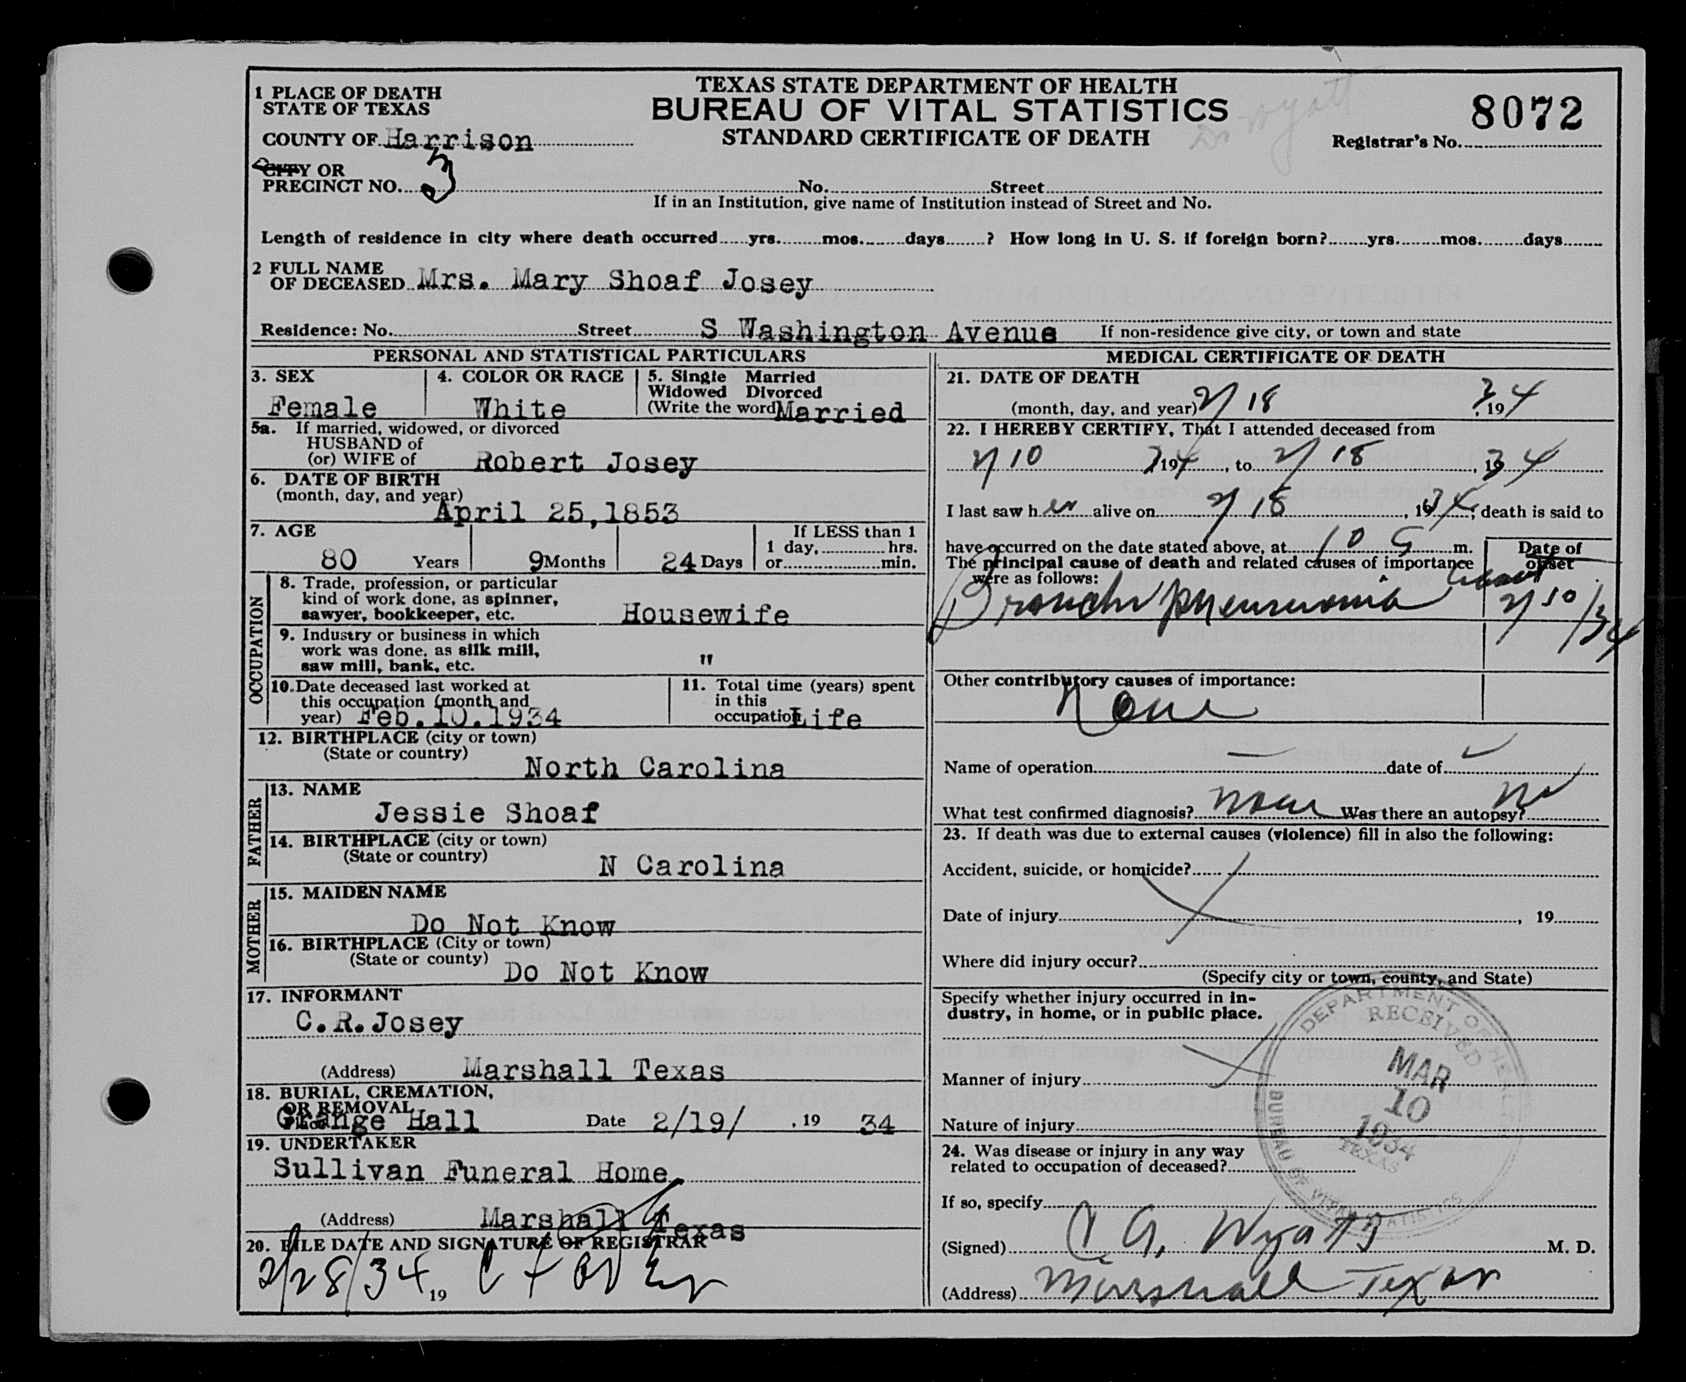 TEXAS STATE DEPARTMENT OF HEALTH
BUREAU OF VITAL STATISTICS
STANDARD CERTIFICATE OF DEATH
Dr Wyatt
8072
Registrar's No.
1 PLACE OF DEATH
STATE OF TEXAS
COUNTY OF Harrison
CITY OR
PRECINCT NO. 3 No. Street
If in an Institution, give name of Institution instead of Street and No.
Length of residence in city where death occurred yrs. mos. days ? How long in U. S. if foreign born? yrs. mos. days
2 FULL NAME
OF DECEASED Mrs. Mary Shoaf Josey
Residence: No. Street S Washington Avenue If non-residence give city, or town and state
PERSONAL AND STATISTICAL PARTICULARS
3. SEX
Female
4. COLOR OR RACE
White
5. Single Married
Widowed Divorced
(Write the word) Married
5a. If married, widowed, or divorced
HUSBAND of
(or) WIFE of Robert Josey
6. DATE OF BIRTH
(month, day, and year)
April 25,1853
7. AGE
80 Years 9 Months 24 Days
If LESS than 1
1 day, hrs.
or min.
OCCUPATION
8. Trade, profession, or particular
kind of work done, as spinner,
sawyer, bookkeeper, etc. Housewife
9. Industry or business in which
work was done, as silk mill,
saw mill, bank, etc. "
10. Date deceased last worked at
this occupation (month and
year) Feb.10.1934
11. Total time (years) spent
in this
occupation Life
12. BIRTHPLACE (city or town)
(State or country)
North Carolina
FATHER
13. NAME
Jessie Shoaf
14. BIRTHPLACE (city or town)
(State or country)
N Carolina
MOTHER
15. MAIDEN NAME
Do Not Know
16. BIRTHPLACE (City or town)
(State or county) Do Not Know
17. INFORMANT
C.R.Josey
(Address) Marshall Texas
18. BURIAL, CREMATION,
OR REMOVAL
Grange Hall Date 2/19/ , 19 34
19. UNDERTAKER
Sullivan Funeral Home
(Address) Marshall Texas
20. FILE DATE AND SIGNATURE OF REGISTRAR
2/28/34 19
MEDICAL CERTIFICATE OF DEATH
21. DATE OF DEATH
(month, day, and year) 2/18 , 1934
22. I HEREBY CERTIFY, That I attended deceased from
2/10 1934, to 2/18, 1934
I last saw her alive on 2/18, 1934; death is said to
have occurred on the date stated above, at 10 a m.
The principal cause of death and related causes of importance
were as follows:
Date of
onset
Broncho pneumonia
2/10/34
Other contributory causes of importance:
None
Name of operation — date of
What test confirmed diagnosis? none Was there an autopsy? no
23. If death was due to external causes (violence) fill in also the following:
Accident, suicide, or homicide?
Date of injury , 19
Where did injury occur?
(Specify city or town, county, and State)
Specify whether injury occurred in in-
dustry, in home, or in public place.
Manner of injury
Nature of injury
24. Was disease or injury in any way
related to occupation of deceased?
If so, specify
(Signed) C. A. Wyatt M. D.
(Address) Marshall Texas
DEPARTMENT OF HEALTH
RECEIVED
MAR
10
1934
TEXAS
BUREAU OF VITAL STATISTICS